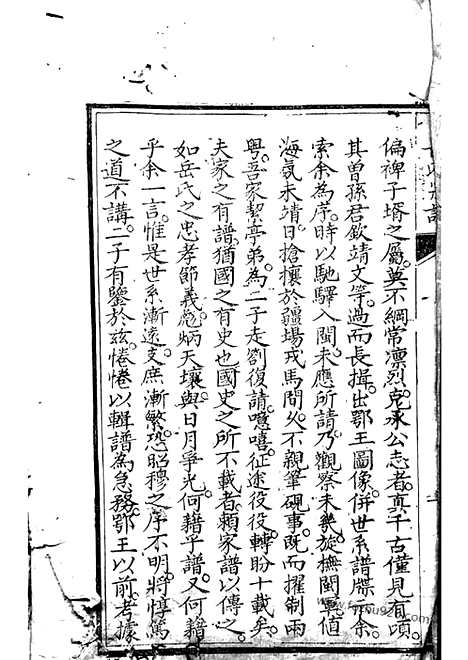 偏裨子壻之屬莫不綱常凛烈克承公志者真千古僅見有頃
其曾孫君欽靖文等過而長揖出鄂王圖像併世系譜牒示余
索余為序時以馳驛入閩未應所請乃觀察未幾旋撫閩軍值
海氛未靖日搶攘於疆場戎馬間久不親筆硯事既而擢制兩
粤吾家絜亭弟為二子走劄復請噫嘻征途役役轉盼十載矣
夫家之有譜猶國之有史也國史之所不載者賴家譜以傳之
如岳氏之忠孝節義彪炳天壤與日月爭光何藉乎譜又何藉
乎余一言惟是世系漸遠支庶漸繁恐昭穆之序不明將惇篤
之道不講二子有鑒於兹惓惓以輯譜為急務鄂王以前考據